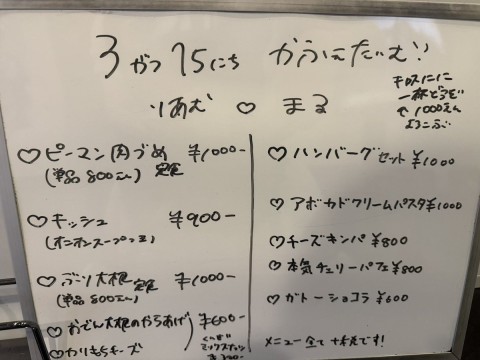 3がつ15にち かふぇたいむ!!
りあむ ♡ まる
一杯どうぞ
1000えん
よろこぶ
♡ピーマン肉づめ 定食 ¥1000-
(単品800えん)
♡キッシュ ¥900-
(オニオンスープつき)
♡ぶり大根 定食 ¥1000-
(単品800えん)
♡おでん大根のからあげ ¥600-
♡かりもちチーズ
ミックスナッツ
♡ハンバーグセット ¥1000
♡アボカドクリームパスタ ¥1000
♡チーズキンパ ¥800
♡本気チェリーパフェ ¥800
♡ガトーショコラ ¥600
メニュー全て です!